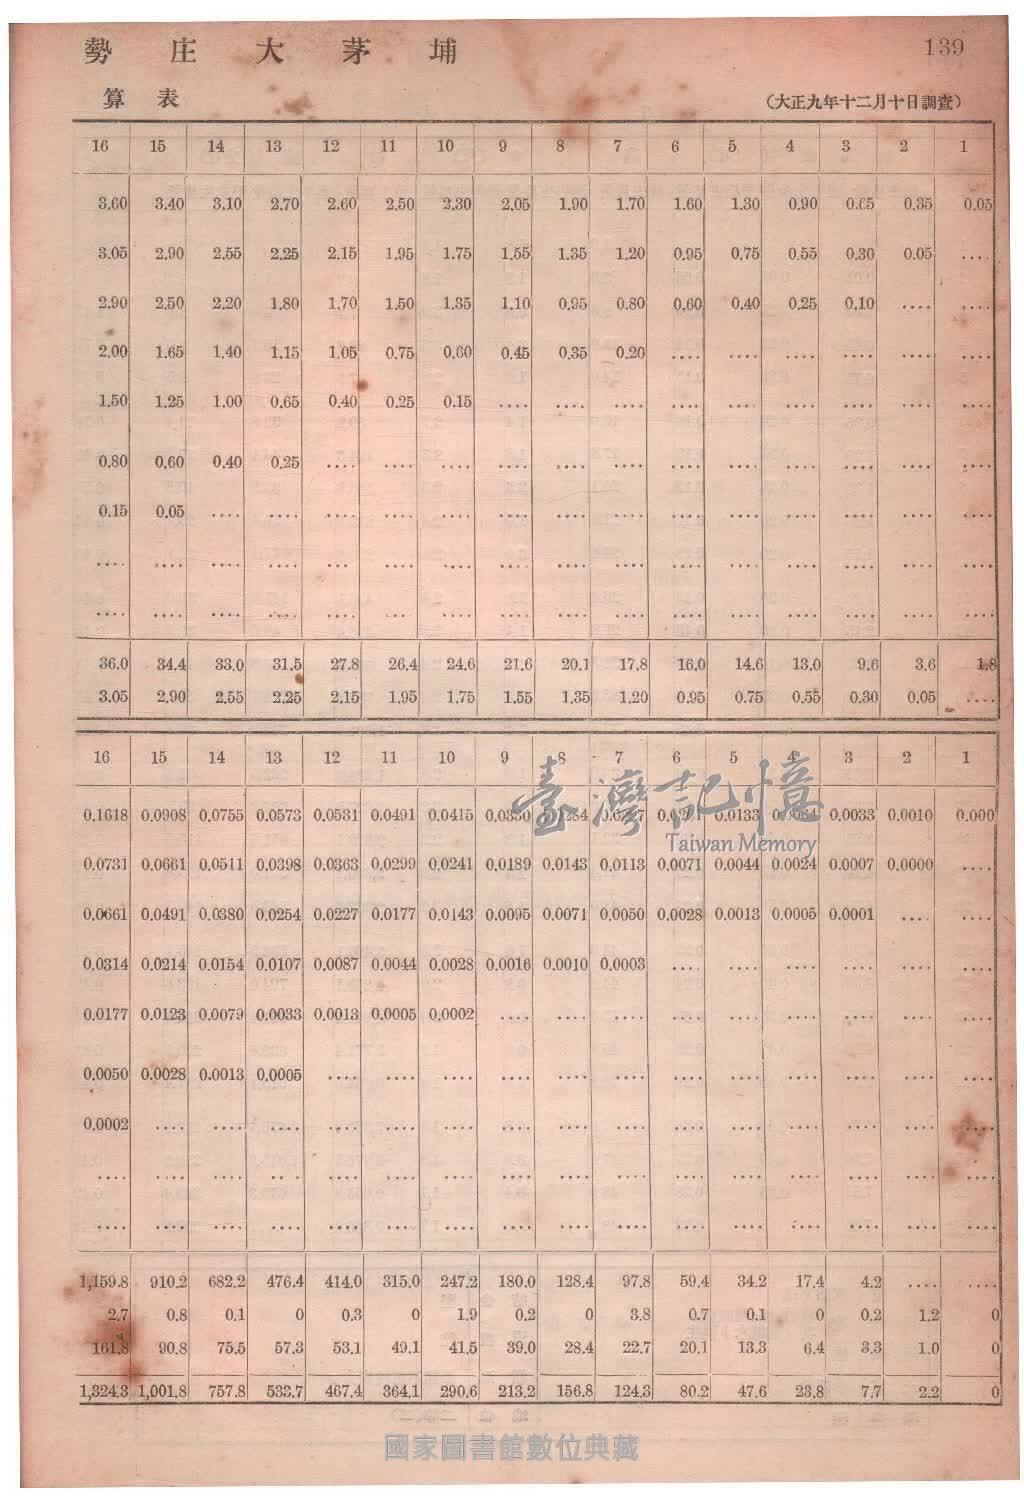 勢庄大茅埔 139
算表 (大正九年十二月十日調査)
16 15 14 13 12 11 10 9 8 7 6 5 4 3 2 1
3.60 3.40 3.10 2.70 2.60 2.50 2.30 2.05 1.90 1.70 1.60 1.30 0.90 0.65 0.35 0.05
3.05 2.90 2.55 2.25 2.15 1.95 1.75 1.55 1.35 1.20 0.95 0.75 0.55 0.30 0.05 ....
2.90 2.50 2.20 1.80 1.70 1.50 1.35 1.10 0.95 0.80 0.60 0.40 0.25 0.10 .... ....
2.00 1.65 1.40 1.15 1.05 0.75 0.60 0.45 0.35 0.20 .... .... .... .... .... ....
1.50 1.25 1.00 0.65 0.40 0.25 0.15 .... .... .... .... .... .... .... .... ....
0.80 0.60 0.40 0.25 .... .... .... .... .... .... .... .... .... .... .... ....
0.15 0.05 .... .... .... .... .... .... .... .... .... .... .... .... .... ....
.... .... .... .... .... .... .... .... .... .... .... .... .... .... .... ....
.... .... .... .... .... .... .... .... .... .... .... .... .... .... .... ....
36.0 34.4 33.0 31.5 27.8 26.4 24.6 21.6 20.1 17.8 16.0 14.6 13.0 9.6 3.6 1.8
3.05 2.90 2.55 2.25 2.15 1.95 1.75 1.55 1.35 1.20 0.95 0.75 0.55 0.30 0.05 ....
16 15 14 13 12 11 10 9 8 7 6 5 4 3 2 1
0.1618 0.0908 0.0755 0.0573 0.0531 0.0491 0.0415 0.0133 0.0033 0.0010 0.000
臺灣記憶
Taiwan Memory
0.0731 0.0661 0.0511 0.0398 0.0363 0.0299 0.0241 0.0189 0.0143 0.0113 0.0071 0.0044 0.0024 0.0007 0.0000 ....
0.0661 0.0491 0.0380 0.0254 0.0227 0.0177 0.0143 0.0095 0.0071 0.0050 0.0028 0.0013 0.0005 0.0001 .... ....
0.0314 0.0214 0.0154 0.0107 0.0087 0.0044 0.0028 0.0016 0.0010 0.0003 .... .... .... .... .... ....
0.0177 0.0123 0.0079 0.0033 0.0013 0.0005 0.0002 .... .... .... .... .... .... .... .... ....
0.0050 0.0028 0.0013 0.0005 .... .... .... .... .... .... .... .... .... .... .... ....
0.0002 .... .... .... .... .... .... .... .... .... .... .... .... .... .... ....
.... .... .... .... .... .... .... .... .... .... .... .... .... .... .... ....
.... .... .... .... .... .... .... .... .... .... .... .... .... .... .... ....
1,159.8 910.2 682.2 476.4 414.0 315.0 247.2 180.0 128.4 97.8 59.4 34.2 17.4 4.2 .... ....
2.7 0.8 0.1 0 0.3 0 1.9 0.2 0 3.8 0.7 0.1 0 0.2 1.2 0
161.8 90.8 75.5 57.3 53.1 49.1 41.5 39.0 28.4 22.7 20.1 13.3 6.4 3.3 1.0 0
1,324.3 1,001.8 757.8 533.7 467.4 364.1 290.6 213.2 156.8 124.3 80.2 47.6 23.8 7.7 2.2 0
國家圖書館數位典藏